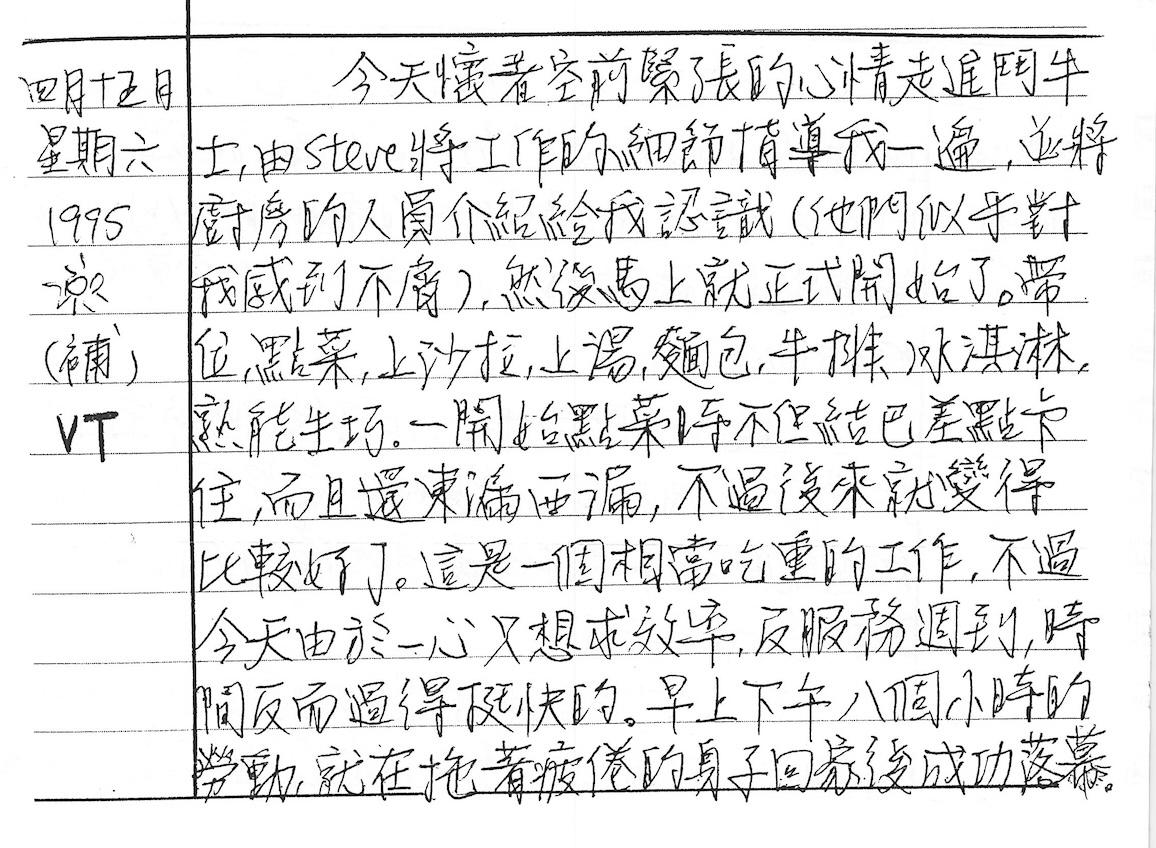 四月十五日
星期六
1995
涼
(補)
VT
今天懷著空前緊張的心情走進鬥牛
士,由steve將工作的細節指導我一遍,並將
廚房的人員介紹給我認識(他們似乎對
我感到不屑),然後馬上就正式開始了。帶
位,點菜,上沙拉,上湯,麵包,牛排,冰淇淋,
熟能生巧。一開始點菜時不但結巴差點卡
住,而且還東漏西漏,不過後來就變得
比較好了。這是一個相當吃重的工作,不過
今天由於一心只想求效率,及服務週到,時
間反而過得挺快的。早上下午八個小時的
勞動,就在拖著疲倦的身子回家後成功落幕。